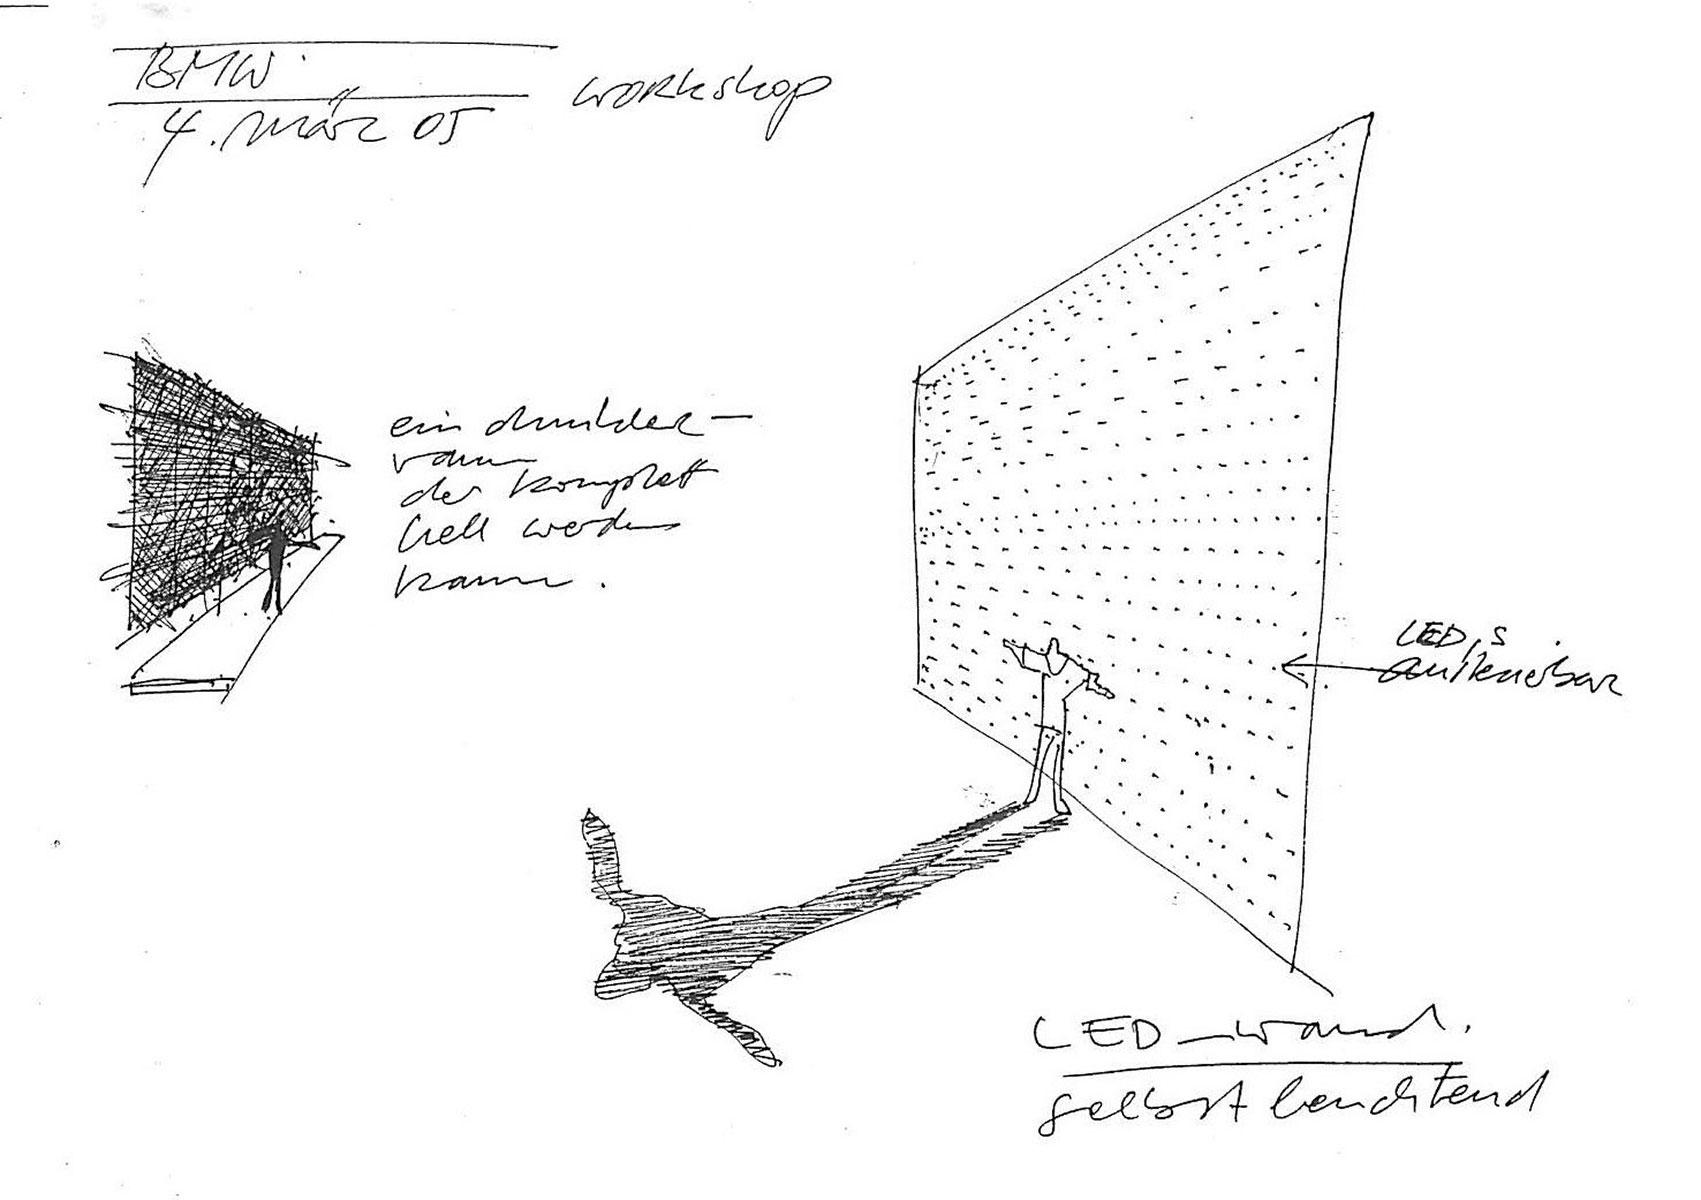 BMW.
4. März 05
workshop
ein dunkler-
raum
der komplett
hell werden
kann.
LED,s
LED_wand.
selbst leuchtend